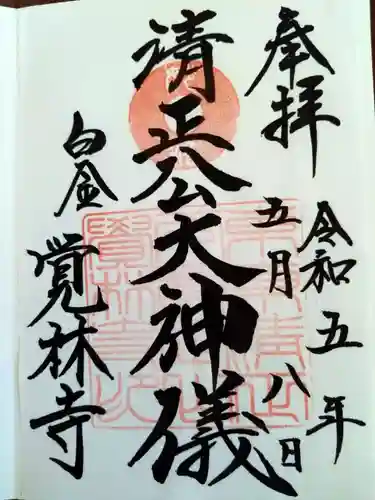 奉拝
令和五年
五月八日
清正公大神儀
白金
覚林寺